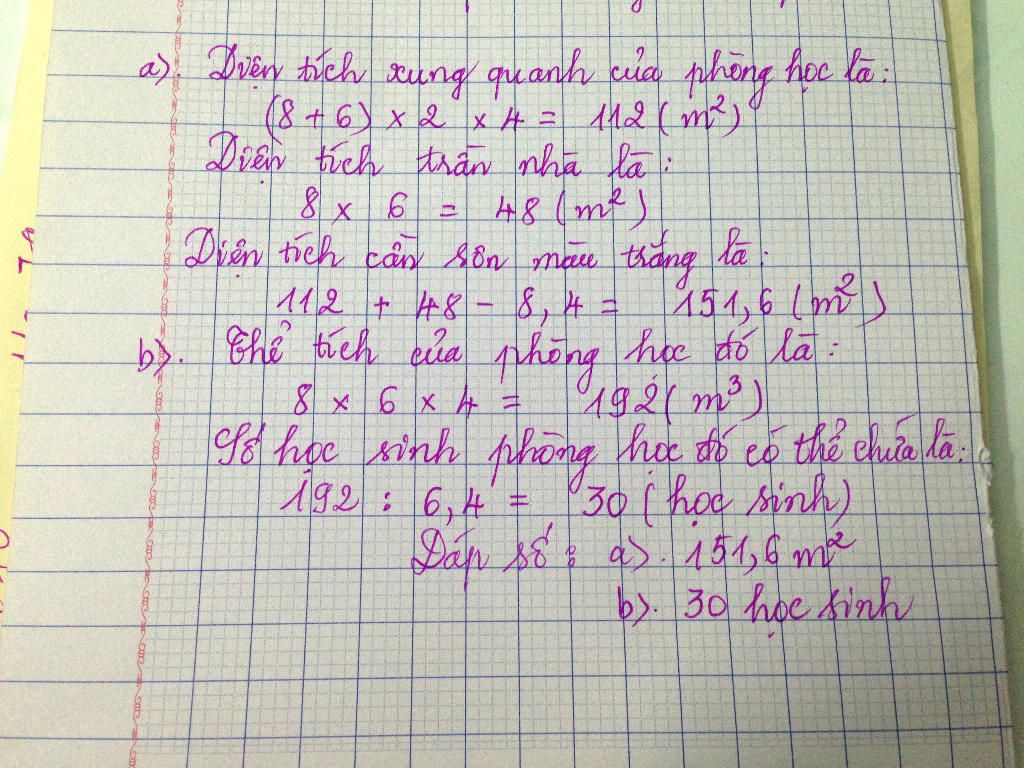 a). Diện tích xung quanh của phòng học là:
(8 + 6) × 2 × 4 = 112 (m²)
Diện tích trần nhà là:
8 × 6 = 48 (m²)
Diện tích cần sơn màu trắng là:
112 + 48 - 8,4 = 151,6 (m²)
b). Thể tích của phòng học đó là:
8 × 6 × 4 = 192 (m³)
Số học sinh phòng học đó có thể chứa là:
192 : 6,4 = 30 (học sinh)
Đáp số: a). 151,6 m²
b). 30 học sinh